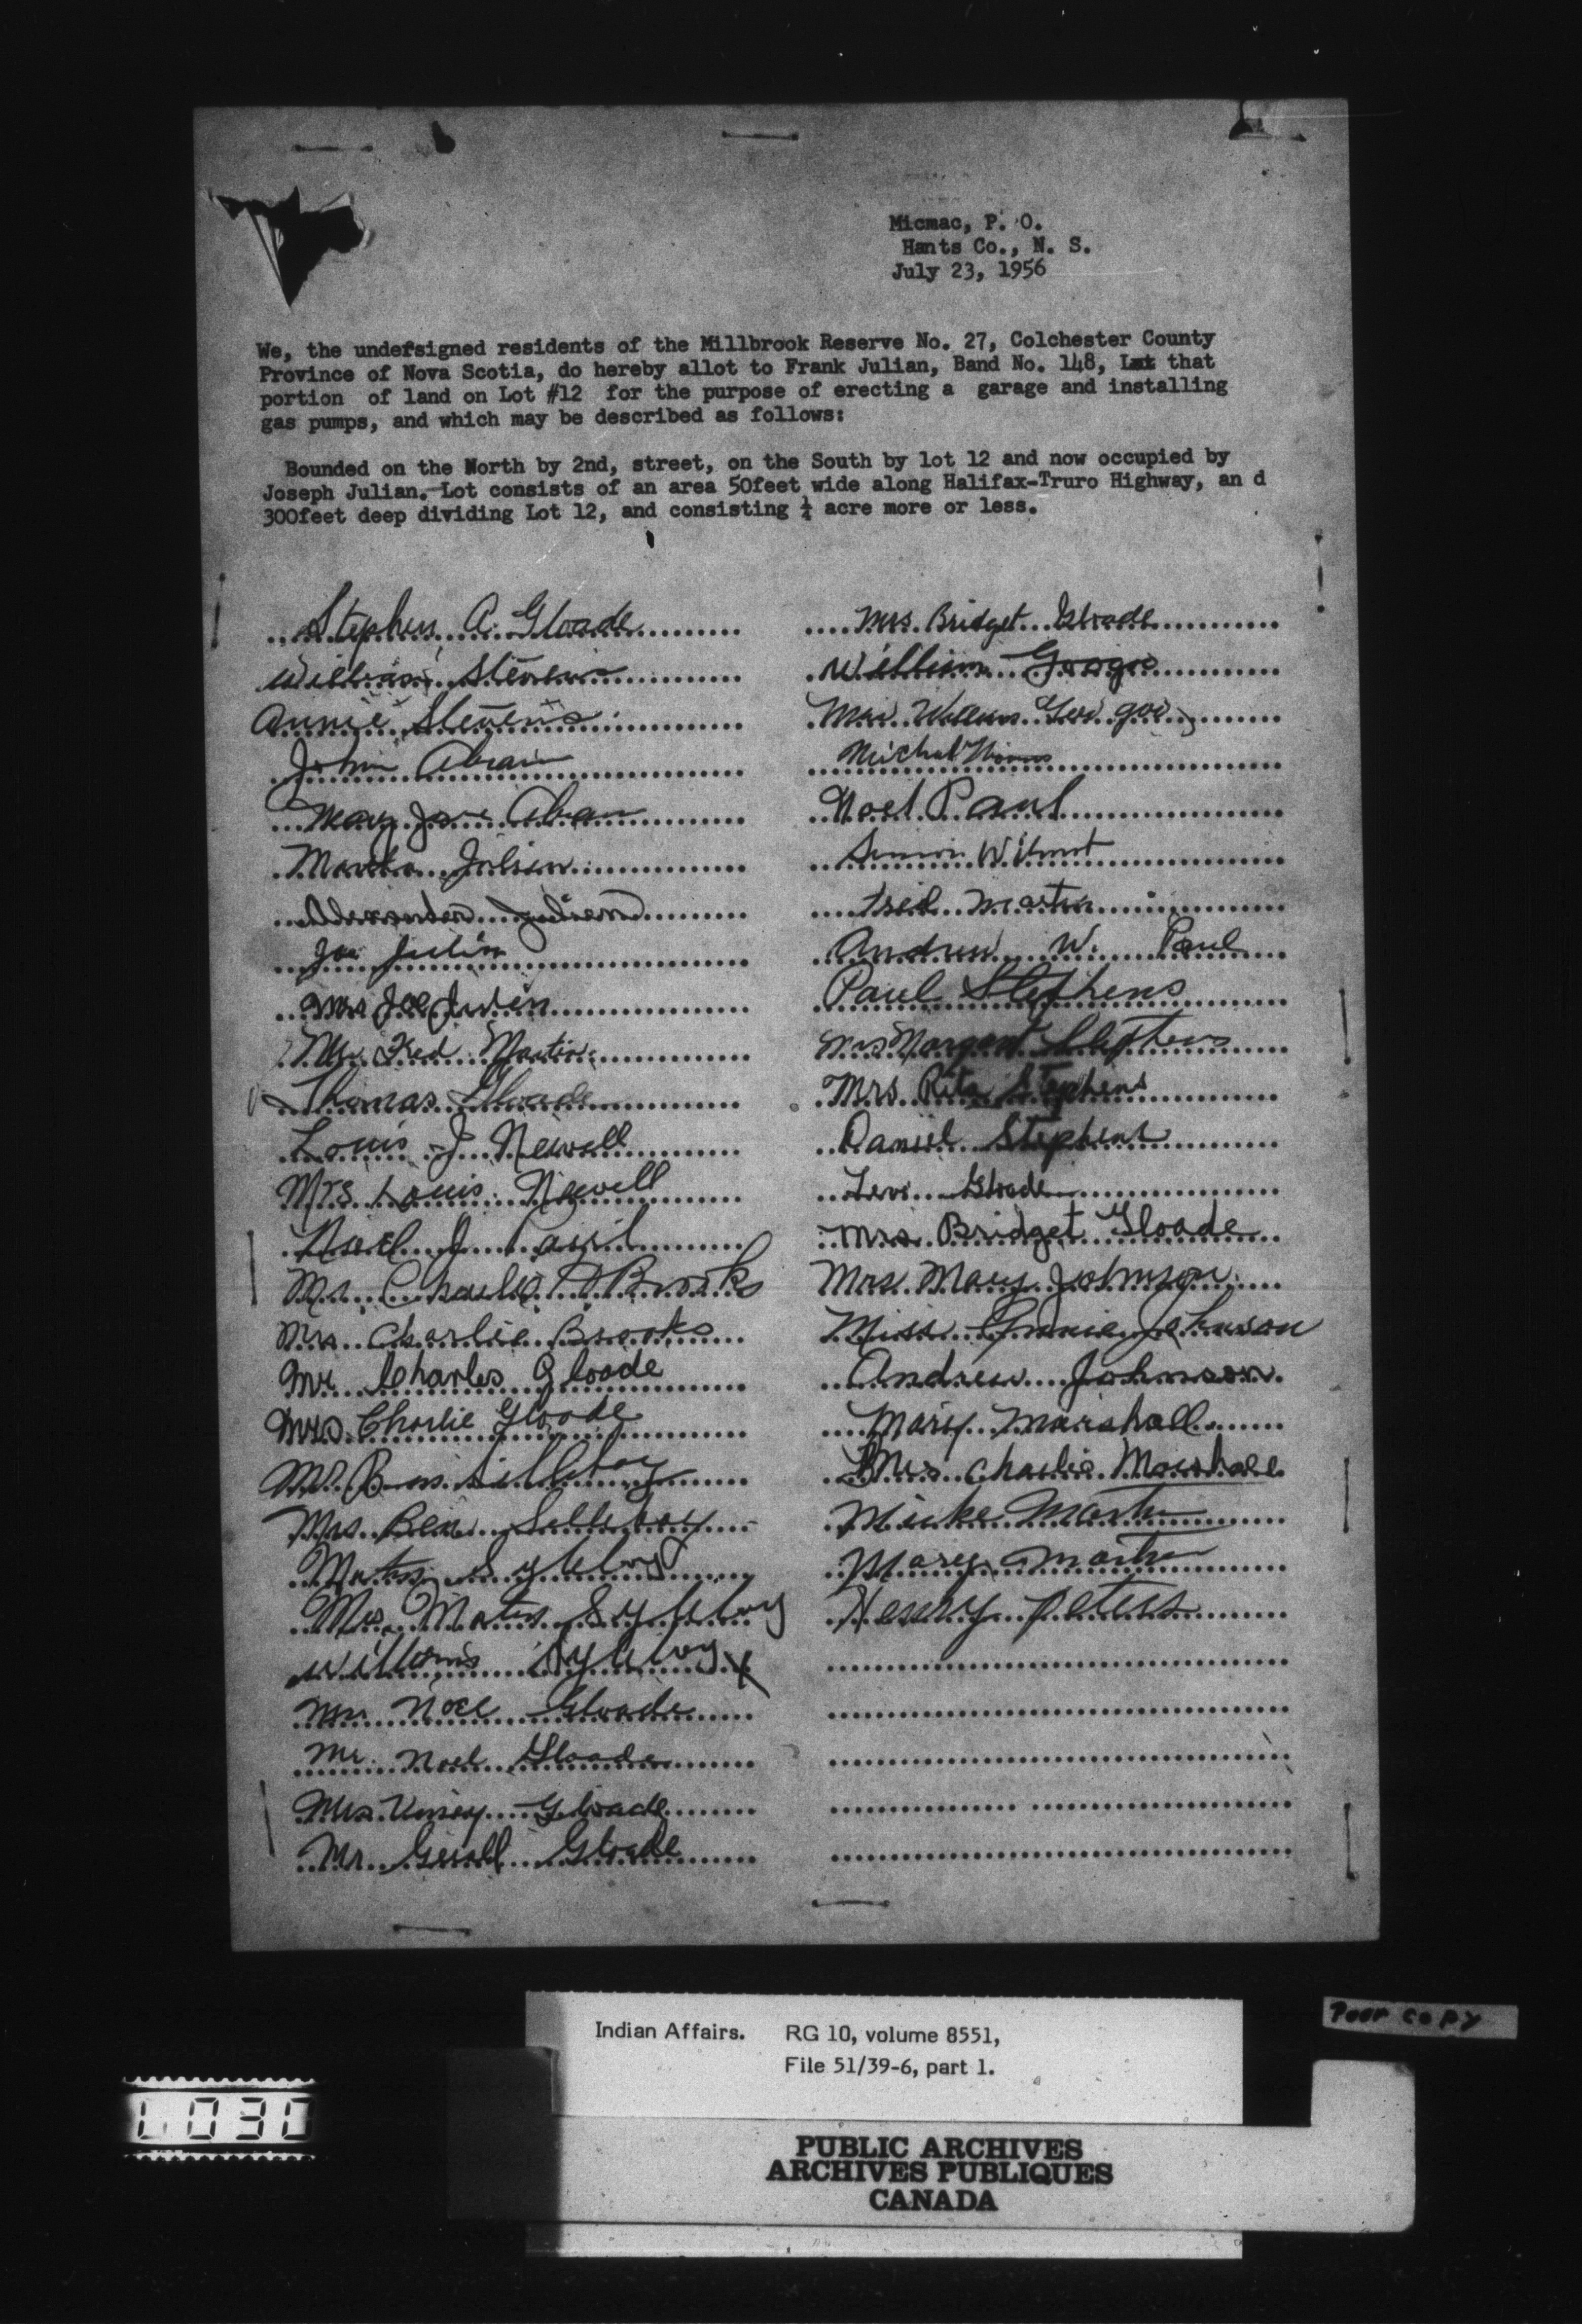 Micmac, P. O.
Hants Co., N. S.
July 23, 1956
We, the undefsigned residents of the Millbrook Reserve No. 27, Colchester County
Province of Nova Scotia, do hereby allot to Frank Julian, Band No. 148, that
portion of land on Lot #12 for the purpose of erecting a garage and installing
gas pumps, and which may be described as follows:
Bounded on the North by 2nd, street, on the South by lot 12 and now occupied by
Joseph Julian. Lot consists of an area 50feet wide along Halifax-Truro Highway, an d
300feet deep dividing Lot 12, and consisting ¼ acre more or less.
Stephen A. Gloade
William Stevens
Annie Stevens
John Abram
Mary Jane Abram
Martha Julien
Alexander Julien
Joe Julin
Mrs Joe
Fred Martin
Thomas Gloade
Louis J. Newell
Mrs Louis Newell
Noel J Paul
Mr Charlie Brooks
Mrs Charlie Brooks
Mr Charles Gloade
Mrs Charlie Gloade
Mr Ben Silliboy
Mrs Ben Silleboy
Sylliboy
Mrs Sylliboy
X
Mrs Noel Gloade
Mr. Noel Gloade
Mrs Gloade
Mr. Gloade
Mrs. Bridget Gloade
William Googoo
Mrs William
Noel Paul
Simon Wilmot
Fred Martin
Andrew W. Paul
Paul Stephens
Mrs Margaret Stephens
Mrs Rita Stephens
Daniel Stephens
Levi Gloade
Mrs Bridget Gloade
Mrs. Mary Johnson
Miss Annie Johnson
Andrew Johnson
Mary Marshall
Mrs Charlie Marshall
Micke Martin
Mary Martin
Henry Peters
Indian Affairs. RG 10, volume 8551,
File 51/39-6, part 1.
Poor copy
030
PUBLIC ARCHIVES
ARCHIVES PUBLIQUES
CANADA